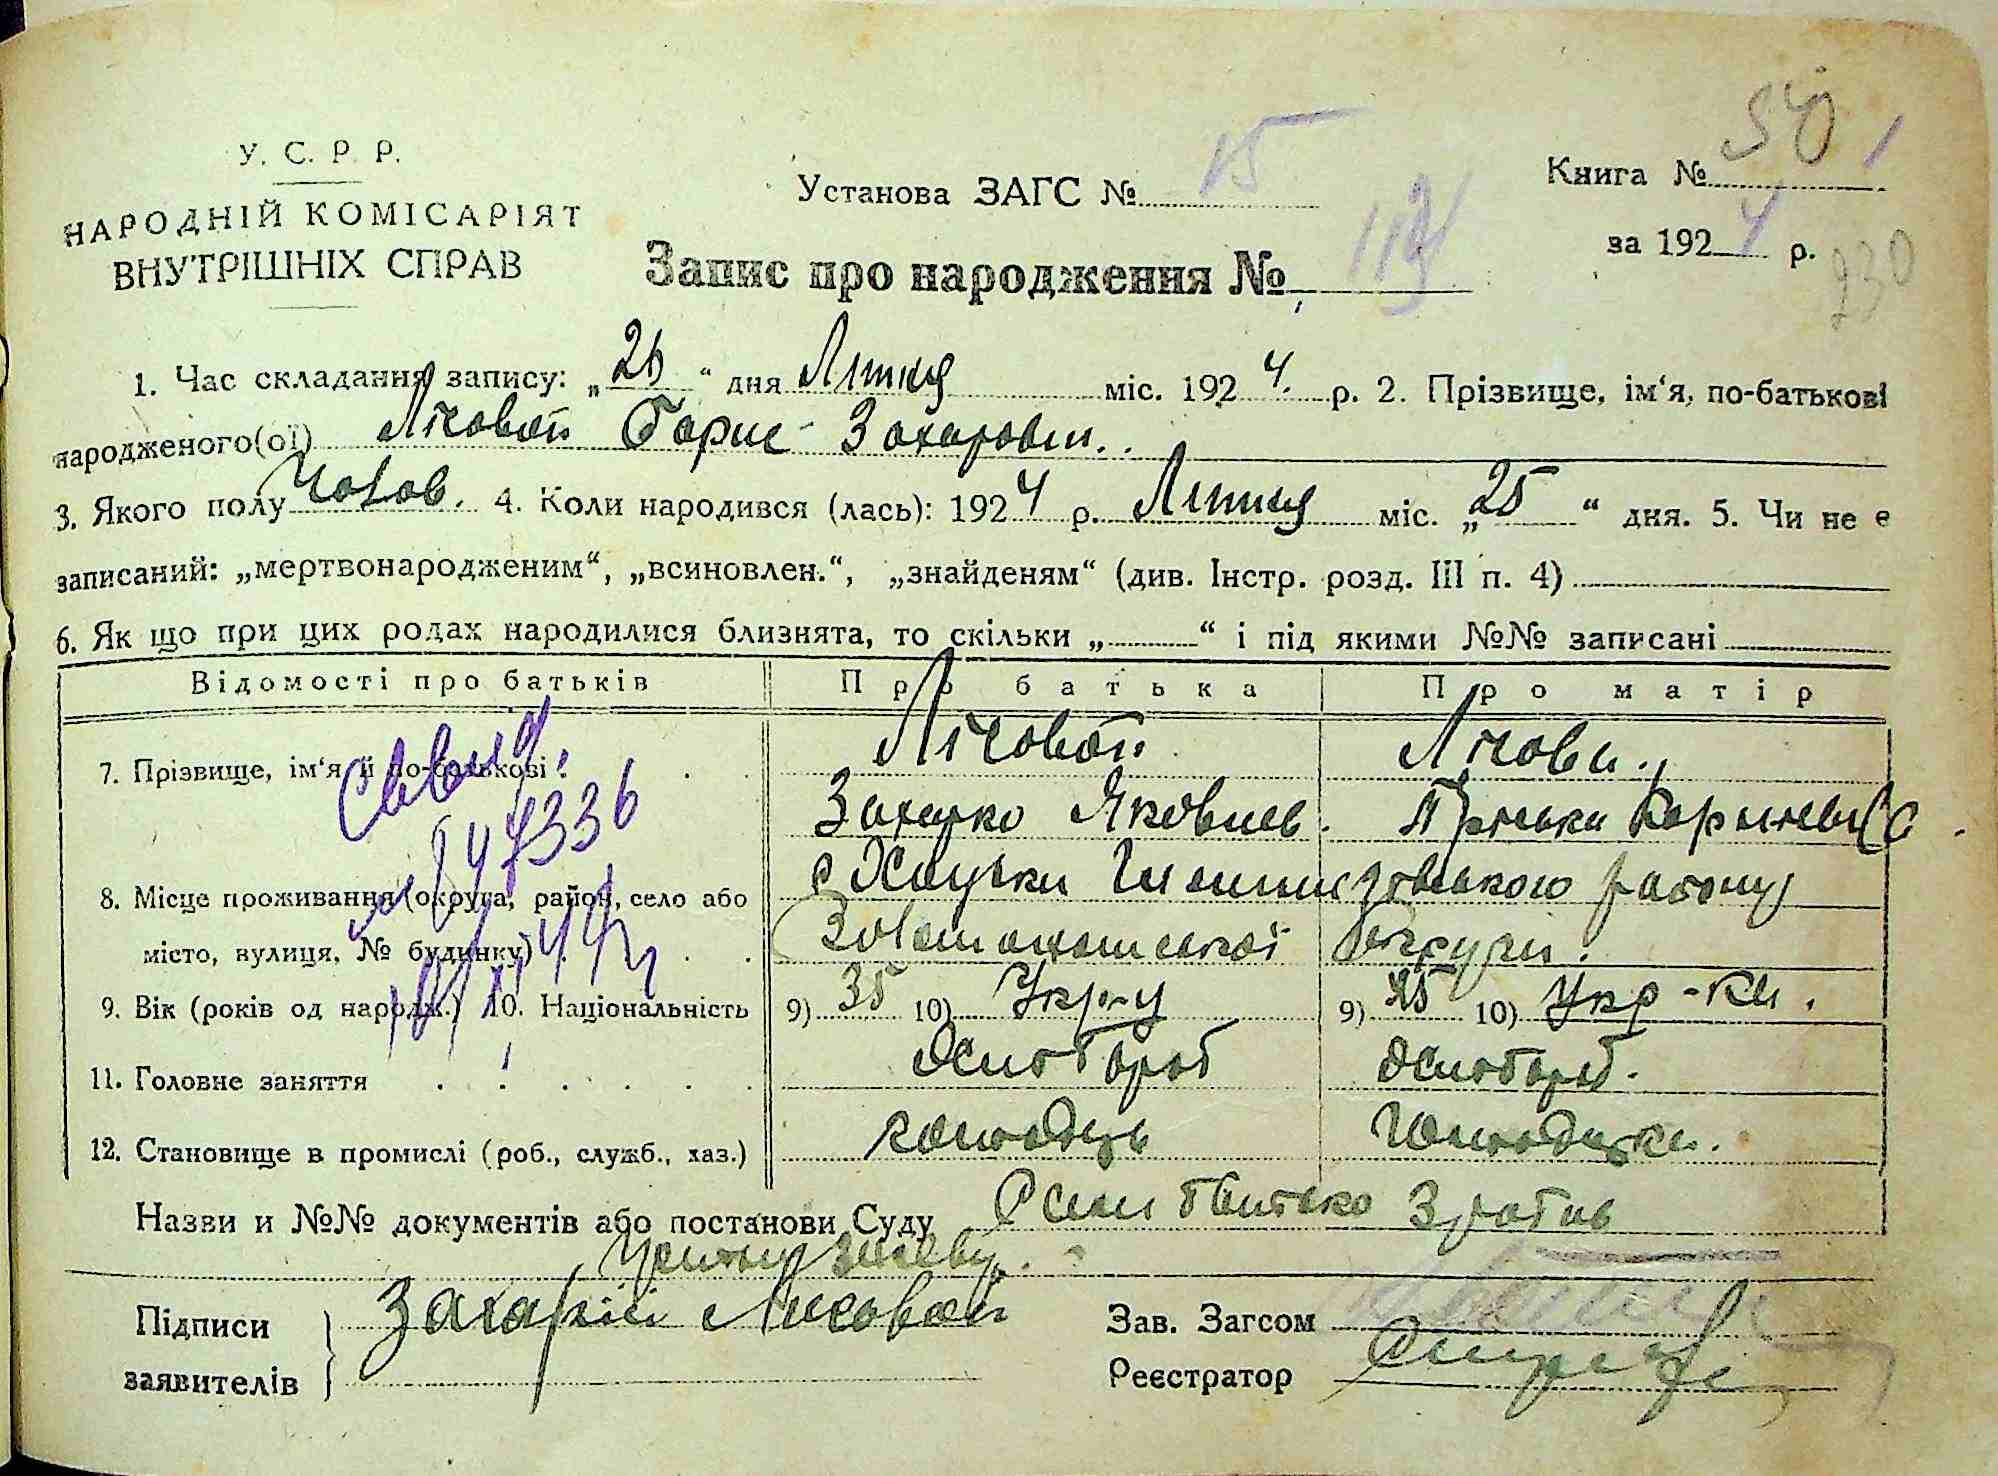 У. С. Р. Р.
НАРОДНІЙ КОМІСАРІЯТ
ВНУТРІШНІХ СПРАВ
Установа ЗАГС № 15
Книга №
за 1924 р.
230
Запис про народження №
1. Час складання запису: „26“ дня Липця міс. 1924. р. 2. Прізвище, ім‘я, по-батькові
народженого(ої) Лісовой Борис Захарович.
3. Якого полу Чолов. 4. Коли народився (лась): 1924 р. Липця міс. „25“ дня. 5. Чи не є
записаний: „мертвонародженим“, „всиновлен.“, „знайденям“ (див. Інстр. розд. III п. 4)
6. Як що при цих родах народилися близнята, то скільки „ “ і під якими №№ записані
Відомості про батьків Про батька Про матір
7. Прізвище, ім‘я й по-батькові Лісовой Лісова.
Захарко Яковлев.
8. Місце проживання (округа, район, село або
місто, вулиця, № будинку) Золотоношської Округи.
району
9. Вік (років од народж.) 10. Національність 9) 35 10) 9) 10) Укр-ка.
11. Головне заняття Хлібороб Хлібороб.
12. Становище в промислі (роб., служб., хаз.) господарь Господарка.
Назви и №№ документів або постанови Суду Сам батько зробив
заяву.
Підписи
заявителів
Захарій Лисовой
Зав. Загсом
Реєстратор
Свид.
10/XI 44 г